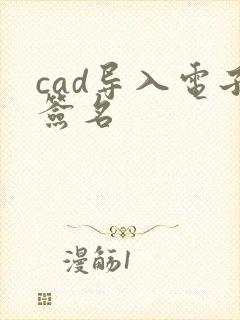 cad导入电子
签名
漫觞1